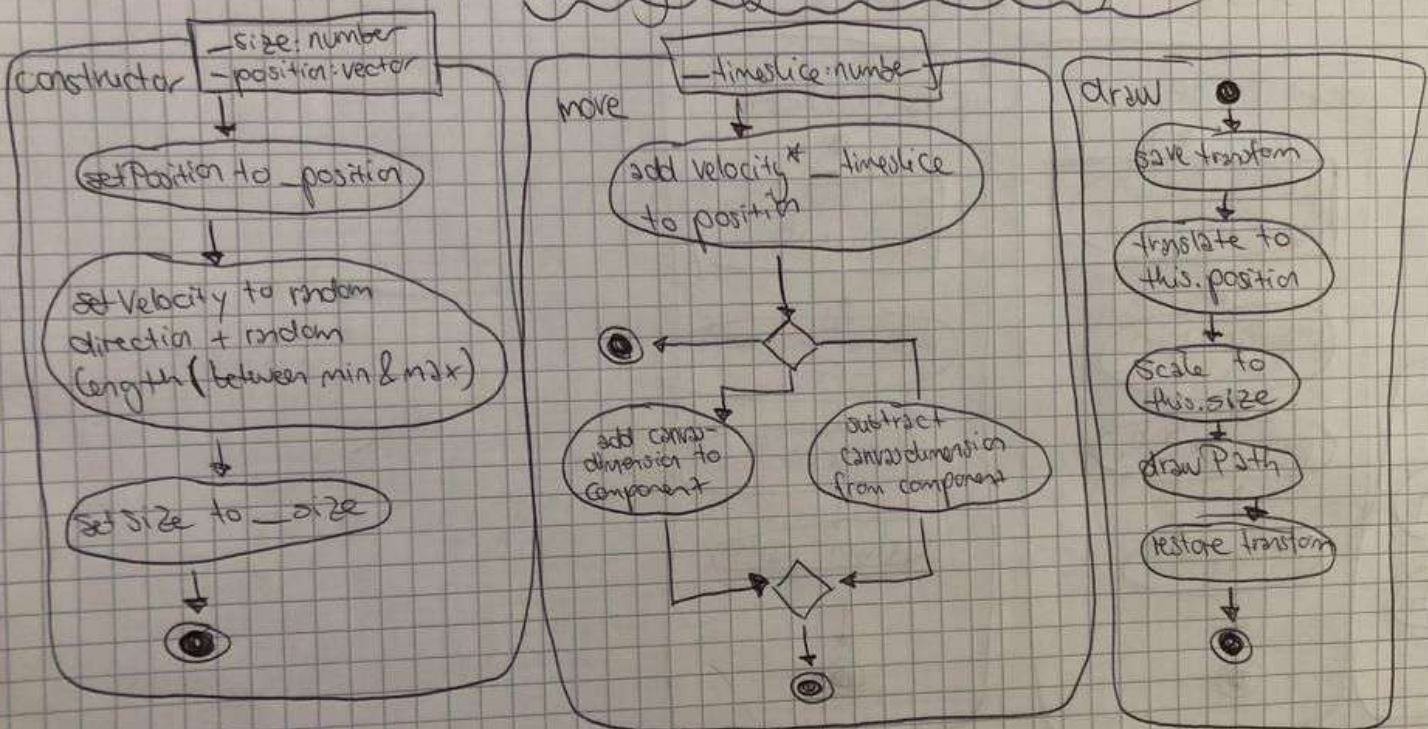 _size: number
_position: vector
constructor
setPosition to _position
set Velocity to random
direction + random
length (between min & max)
set size to _size
_timeslice: numbe
move
add velocity * _timeslice
to position
add canvas-
dimension to
component
subtract
canvasdimension
from component
draw
save transfom
translate to
this.position
scale to
this.size
draw Path
restore transfom